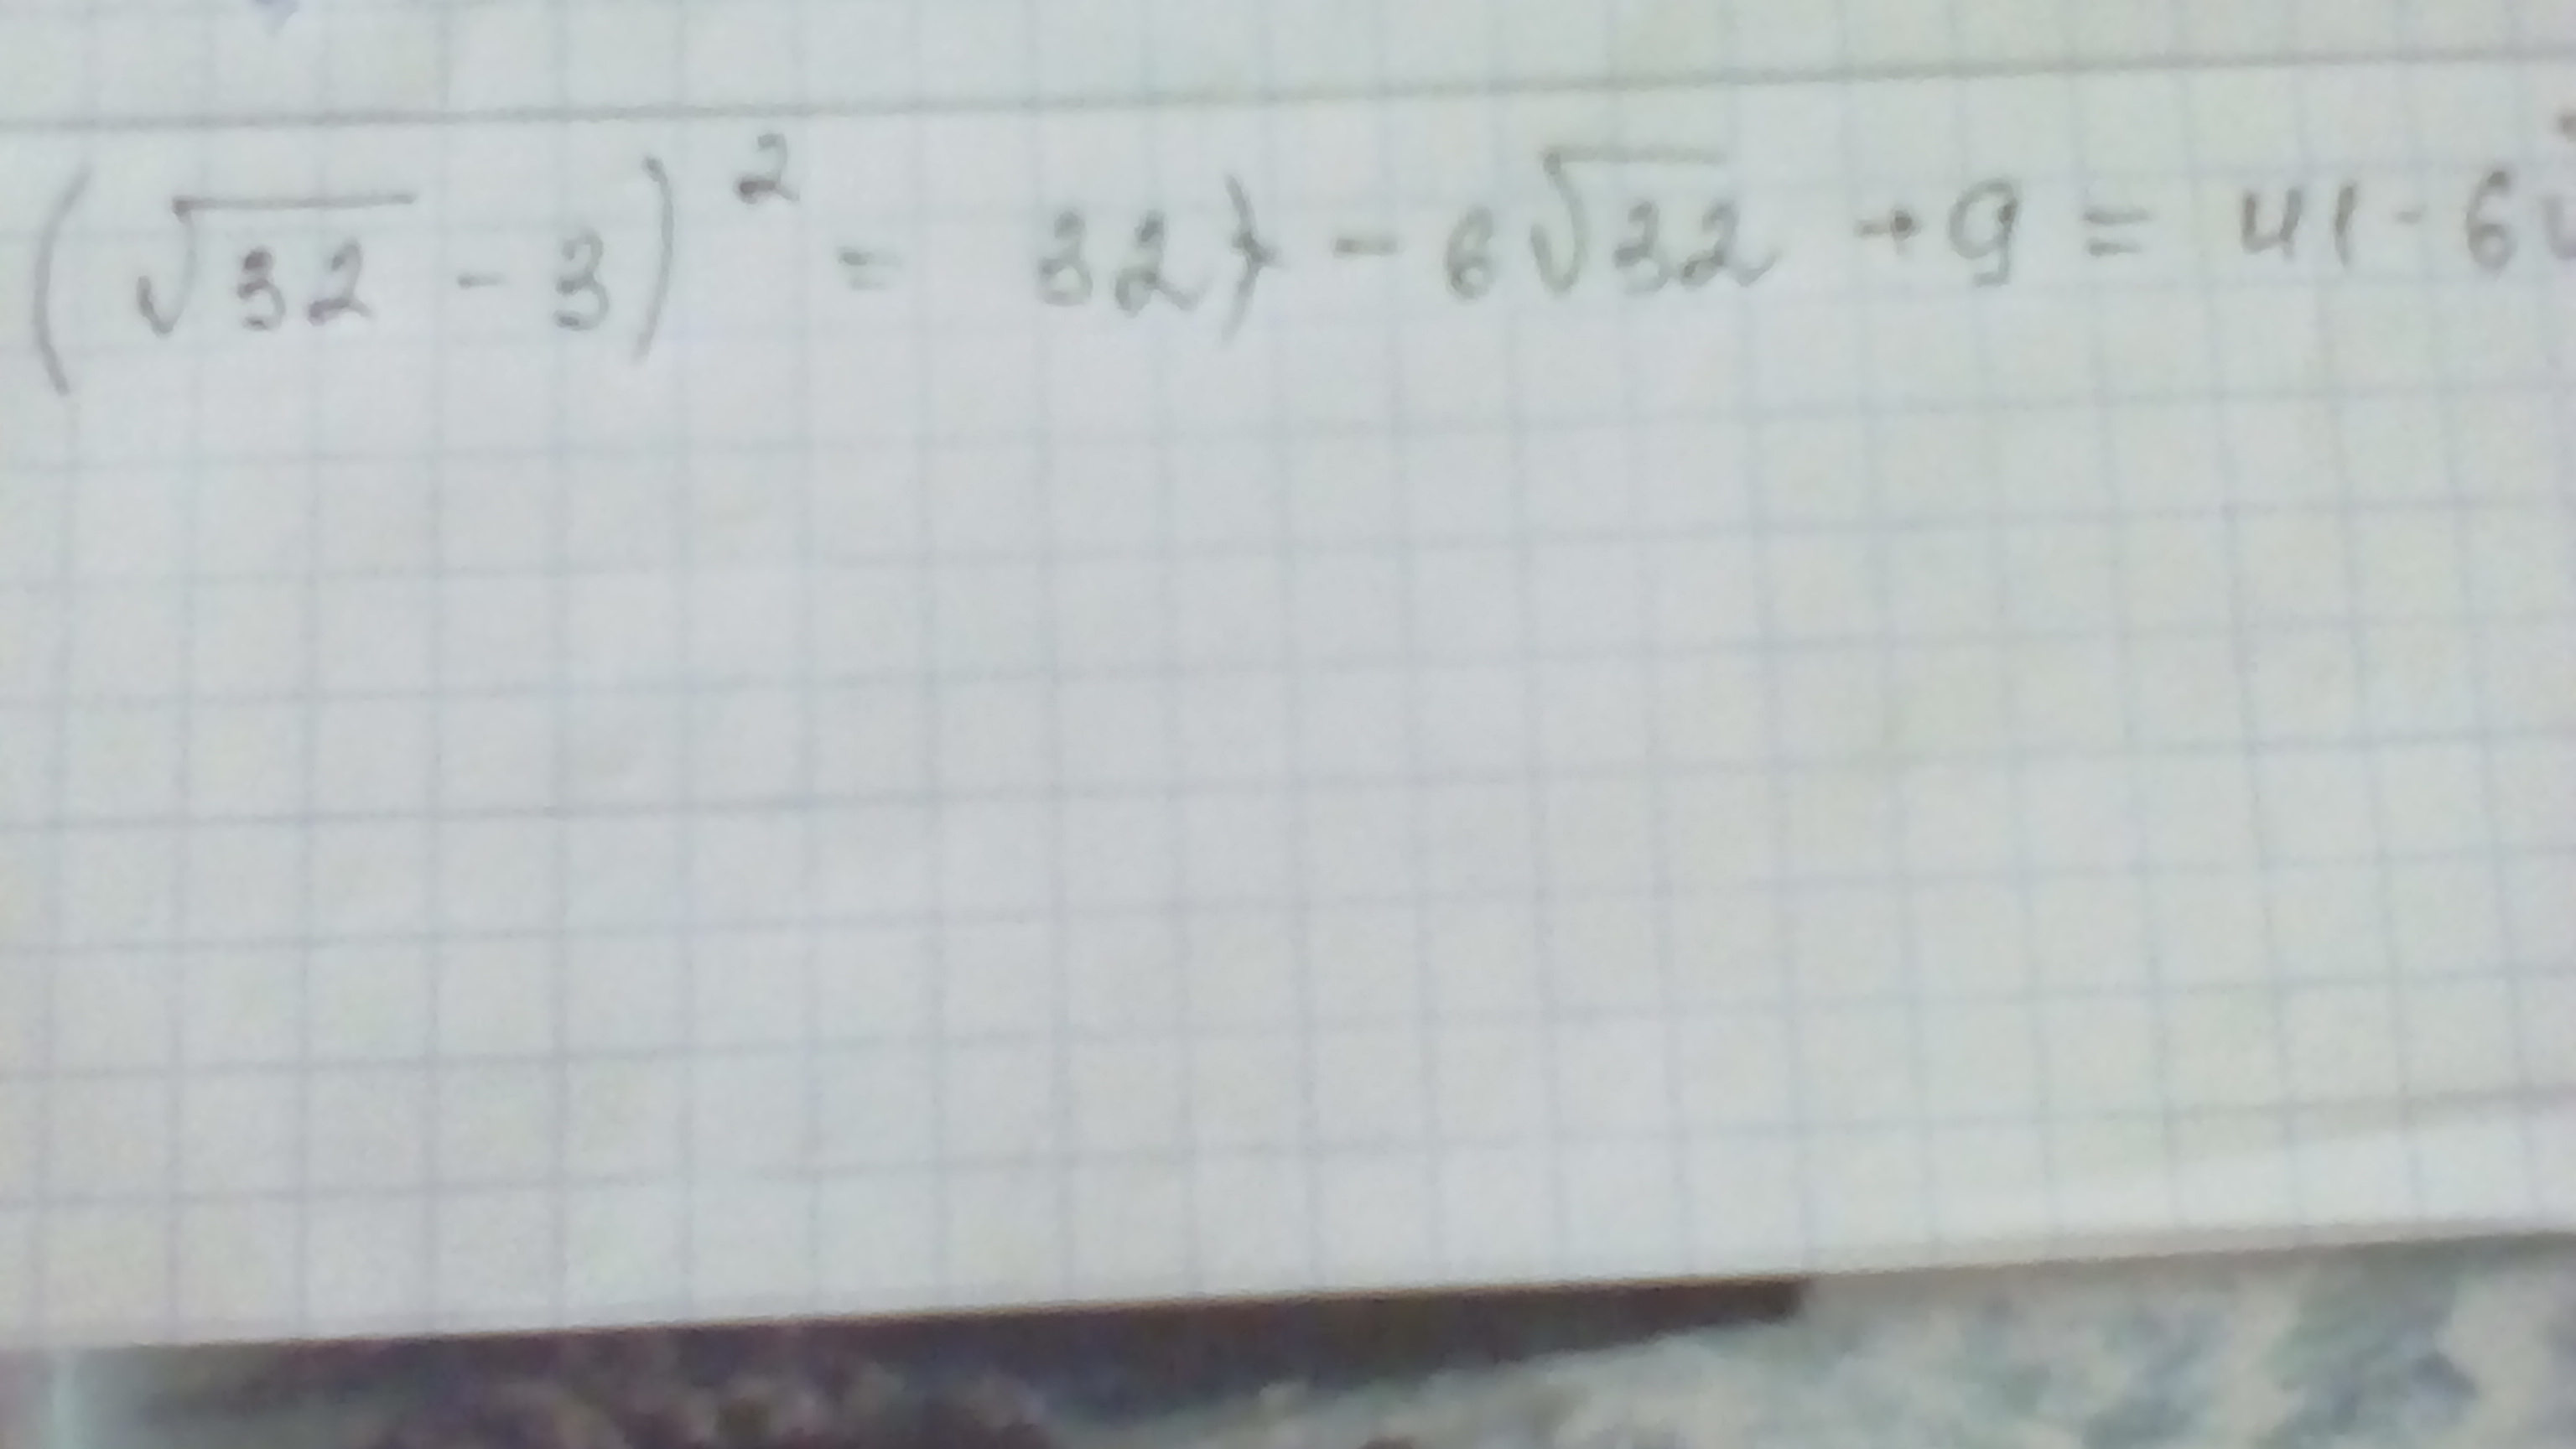 (√32 - 3)² = 32 - 6√32 + 9 = 41 - 6